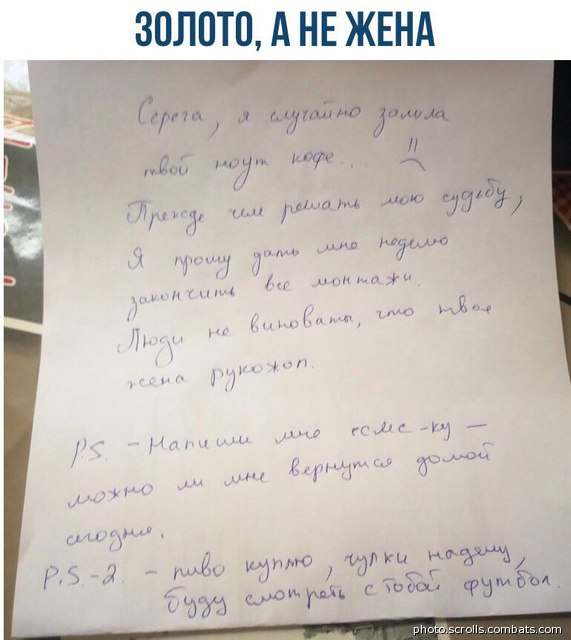 ЗОЛОТО, А НЕ ЖЕНА
Серега, я случайно залила
твой ноут кофе...
Прежде чем решать мою судьбу,
Я прошу дать мне неделю
закончить все монтажи.
Люди не виноваты, что твоя
жена рукожоп.
P.S. - Напиши мне смс-ку -
можно ли мне вернутся домой
сегодня.
P.S.-2. - пиво куплю, чулки надену,
буду смотреть с тобой футбол.
photo.scrolls.combats.com